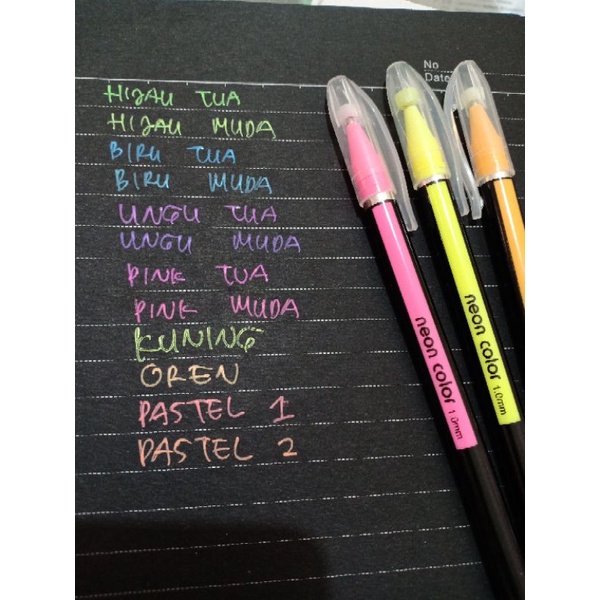 No
Date
HIJAU TUA
HIJAU MUDA
BIRU TUA
BIRU MUDA
UNGU TUA
UNGU MUDA
PINK TUA
PINK MUDA
KUNING
OREN
PASTEL 1
PASTEL 2
neon color 1.0mm
neon color 1.0mm